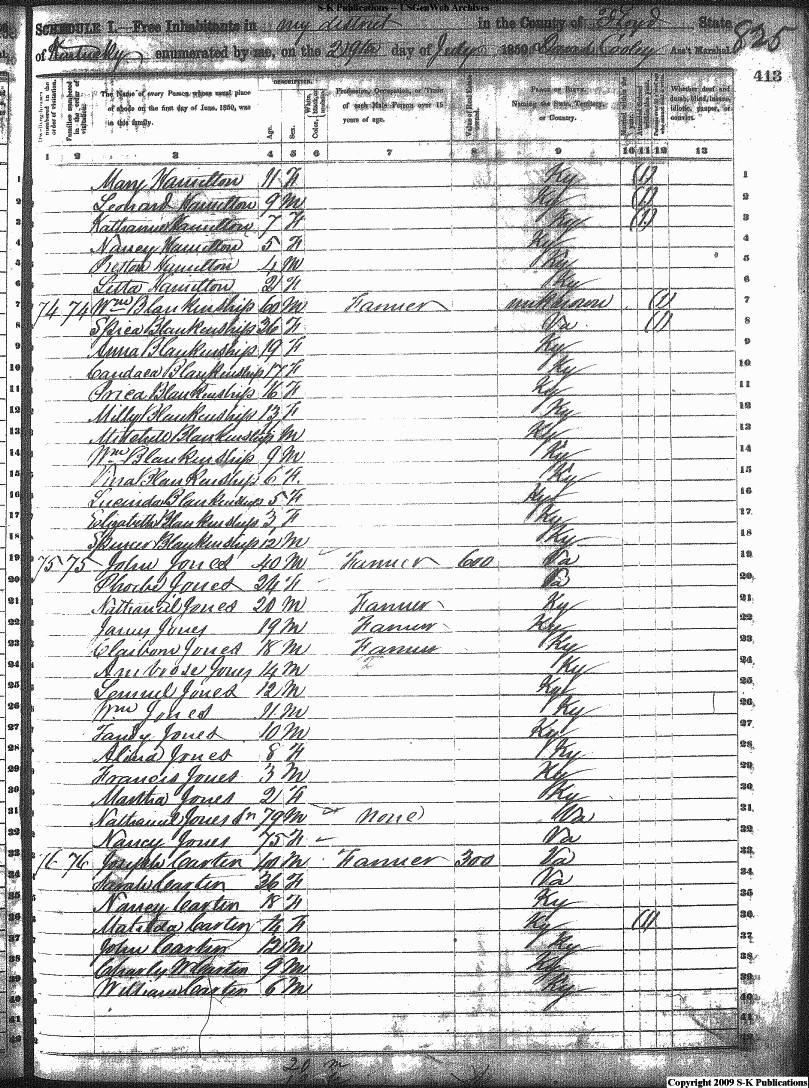 S-K Publications – USGenWeb Archives
SCHEDULE I.—Free Inhabitants in my district in the County of Floyd State
of Kentucky enumerated by me, on the 29th day of July 1850. David Cooley Ass't Marshal. 825
413
DESCRIPTION.
Dwelling-houses numbered in the order of visitation.
Families numbered in the order of visitation.
The Name of every Person whose usual place of abode on the first day of June, 1850, was in this family.
Age.
Sex.
White, black, or mulatto. Color,
Profession, Occupation, or Trade of each Male Person over 15 years of age.
Value of Real Estate owned.
PLACE OF BIRTH. Naming the State, Territory, or Country.
Married within the year.
Whether deaf and dumb, blind, insane, idiotic, pauper, or convict.
1 2 3 4 5 6 7 8 9 10 11 12 13
1 Mary Hamilton 11 F Ky (1) 1
2 Leonard Hamilton 9 M Ky (1) 2
3 Hamilton 7 F Ky (1) 3
4 Nancy Hamilton 5 F Ky 4
5 Preston Hamilton 4 M Ky 5
6 Letta Hamilton 2 F Ky 6
7 74 74 Wm Blankinship 60 M Farmer unknown (1) 7
8 Blankinship 36 F Va (1) 8
9 Anna Blankinship 19 F Ky 9
10 Candaca Blankinship 17 F Ky 10
11 Blankinship 16 F Ky 11
12 Milly Blankinship 13 F Ky 12
13 Blankinship M Ky 13
14 Wm Blankinship 9 M Ky 14
15 Blankinship 6 F. Ky 15
16 Lucinda Blankinship 5 F Ky 16
17 Elizabeth Blankinship 3 F Ky 17
18 Spencer Blankinship 12 M Ky 18
19 75 75 John Jones 40 M Farmer 600 Va 19
20 Phoebe Jones 24 F Va 20
21 Nathaniel Jones 20 M Farmer Ky 21
22 James Jones 19 M Farmer Ky 22
23 Claiborn Jones 18 M Farmer Ky 23
24 Ambrose Jones 14 M Ky 24
25 Lemuel Jones 12 M Ky 25
26 Wm Jones 11 M Ky 26
27 Jones 10 M Ky 27
28 Jones 8 F Ky 28
29 Francis Jones 3 M Ky 29
30 Martha Jones 2 F Ky 30
31 Nathaniel Jones Sn 79 M none Va 31
32 Nancy Jones 75 F Va 32
33 76 76 Joseph Carten 60 M Farmer 300 Va 33
34 Sarah Carten 36 F Va 34
35 Nancy Carten 18 F Ky 35
36 Matilda Carten 14 F Ky (1) 36
37 John Carten 12 M Ky 37
38 Charly W Carten 9 M Ky 38
39 William Carten 6 M Ky 39
40 40
41 41
42 42
Copyright 2009 S-K Publications